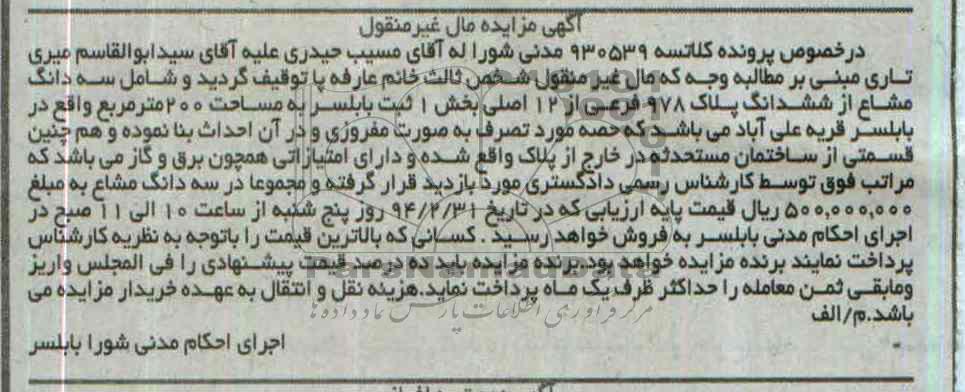 آگهی مزایده مال غیرمنقول
درخصوص پرونده کلاتسه ۹۳۰۵۳۹ مدنی شورا له آقای مسیب حیدری علیه آقای سیدابوالقاسم میری
تاری مبنی بر مطالبه وجه که مال غیر منقول شخص ثالث خانم عارفه پا توقیف گردید و شامل سه دانگ
مشاع از ششدانگ پلاک ۹۷۸ فرعی از ۱۲ اصلی بخش ۱ ثبت بابلسر به مساحت ۲۰۰مترمربع واقع در
بابلسر قریه علی آباد می باشد که حصه مورد تصرف به صورت مفروزی و در آن احداث بنا نموده و هم چنین
قسمتی از ساختمان مستحدثه در خارج از پلاک واقع شده و دارای امتیازاتی همچون برق و گاز می باشد که
مراتب فوق توسط کارشناس رسمی دادگستری مورد بازدید قرار گرفته و مجموعا در سه دانگ مشاع به مبلغ
۵۰۰,۰۰۰,۰۰۰ ریال قیمت پایه ارزیابی که در تاریخ ۹۴/۲/۳۱ روز پنج شنبه از ساعت ۱۰ الی ۱۱ صبح در
اجرای احکام مدنی بابلسر به فروش خواهد رسید . کسانی که بالاترین قیمت را باتوجه به نظریه کارشناس
پرداخت نمایند برنده مزایده خواهد بود.برنده مزایده باید ده درصد قیمت پیشنهادی را فی المجلس واریز
ومابقی ثمن معامله را حداکثر ظرف یک ماه پرداخت نماید.هزینه نقل و انتقال به عهده خریدار مزایده می
باشد.م/الف
اجرای احکام مدنی شورا بابلسر
ParsNamadData
مرکز فرآوری اطلاعات پارس نماد داده ها